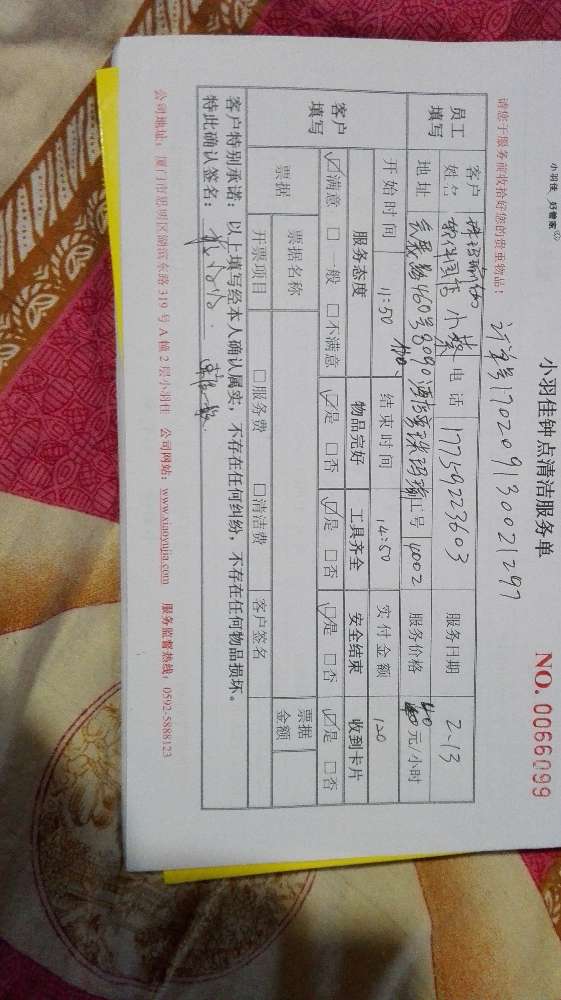 小羽佳 好管家
小羽佳钟点清洁服务单
NO. 0066099
请您于服务前收拾好您的贵重物品!
订单号170209130021297
员工填写
客户姓名 小蔡 电话 17759223603 服务日期 2-13
地址 460号 工号 4002 服务价格 40 元/小时
开始时间 11:50 结束时间 14:50 实付金额 120
客户填写
服务态度 物品完好 工具齐全 安全结束 收到卡片
☑满意 □一般 □不满意 ☑是 □否 ☑是 □否 ☑是 □否 ☑是 □否
票据 票据名称 票据金额
开票项目 □服务费 □清洁费 客户签名
客户特别承诺:以上填写经本人确认属实,不存在任何纠纷,不存在任何物品损坏。
特此确认签名:
公司地址:厦门市思明区湖滨东路319号A幢2层小羽佳 公司网站:www.xiaoyujia.com 服务监督热线:0592-5888123